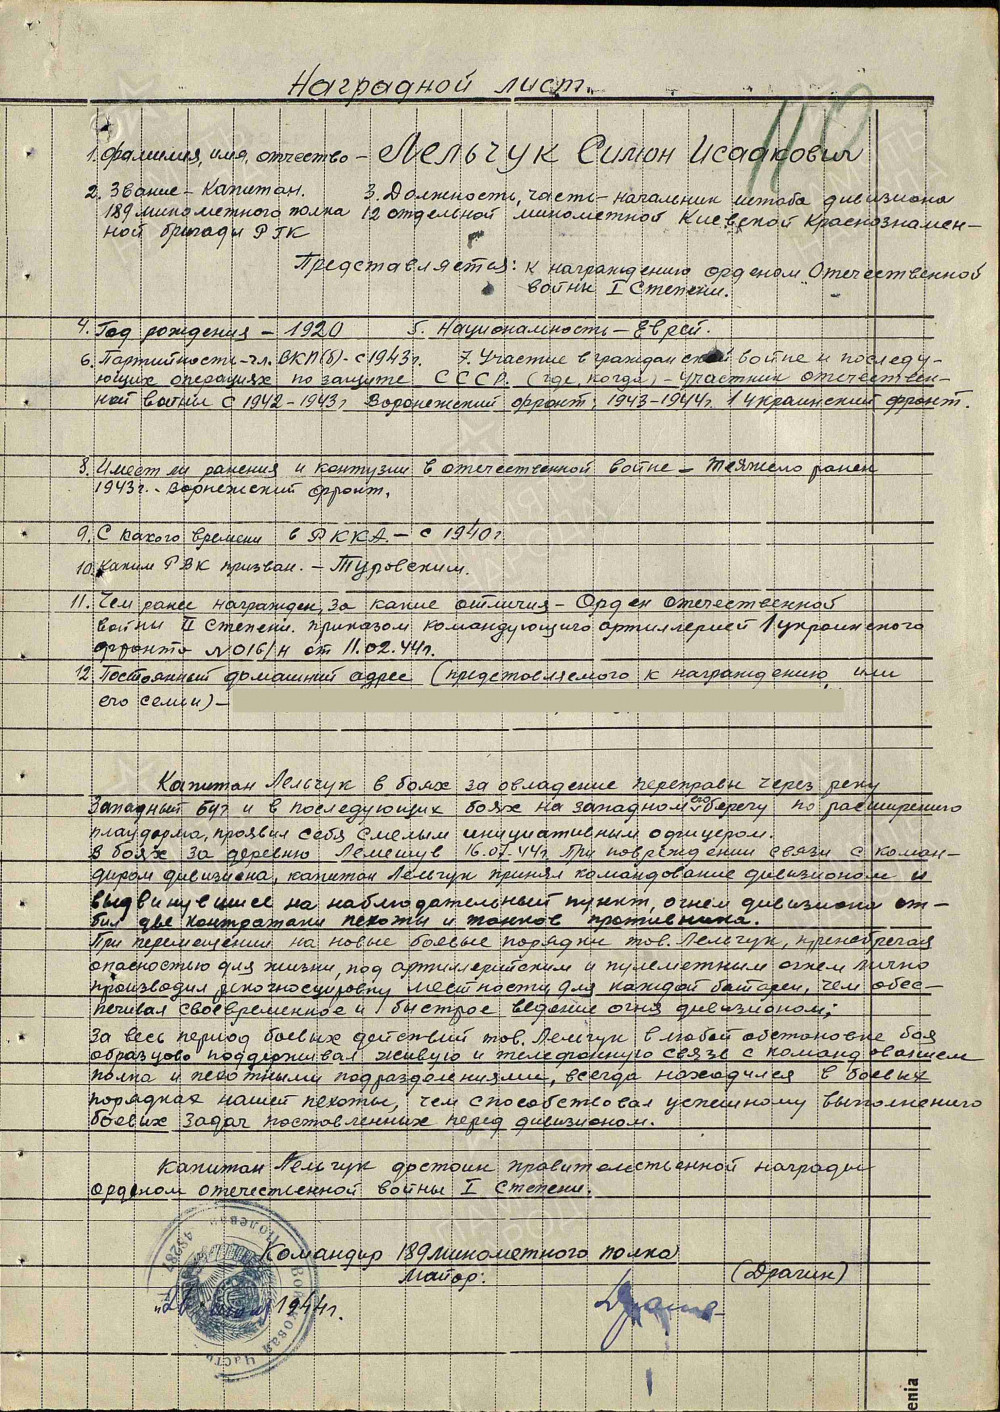 Наградной лист.
1. фамилия, имя, отчество – Лельчук Симон Исаакович
2. Звание – Капитан. 3. Должность, часть – начальник штаба дивизиона
189 минометного полка 12 отдельной минометной Киевской Краснознамен-
ной бригады РГК
Представляется: к награждению орденом Отечественной
войны I Степени.
4. Год рождения – 1920 5. Национальность – Еврей.
6. Партийность – чл. ВКП(б) – с 1943г. 7. Участие в гражданской войне и последу-
ющих операциях по защите СССР. (где, когда) – участник отечествен-
ной войны с 1942 – 1943г Воронежский фронт; 1943–1944г. 1 Украинский фронт.
8. Имеет ли ранения и контузии в отечественной войне – тяжело ранен
1943г. – Воронежский фронт.
9. С какого времени в РККА. – с 1940г
10. Каким РВК призван. – Туровским.
11. Чем ранее награжден, за какие отличия – Орден отечественной
войны II Степени. приказом командующего артиллерией 1 украинского
фронта N016/н от 11.02.44г.
12. Постоянный домашний адрес (представляемого к награждению, или
его семьи) –
Капитан Лельчук в боях за овладение переправы через реку
Западный Буг и в последующих боях на западном его берегу по расширению
плацдарма, проявил себя смелым инициативным офицером.
В боях за деревню Лемешув 16.07.44г. При повреждении связи с коман-
диром дивизиона, капитан Лельчук принял командование дивизионом и
выдвинувшись на наблюдательный пункт, огнем дивизиона от-
бил две контратаки пехоты и танков противника.
При перемещении на новые боевые порядки тов. Лельчук, пренебрегая
опасностью для жизни, под артиллерийским и пулеметным огнем лично
производил рекогносцировку местности для каждой батареи, чем обес-
печивал своевременное и быстрое ведение огня дивизионом;
За весь период боевых действий тов. Лельчук в любой обстановке боя
образцово поддерживал живую и телефонную связь с командованием
полка и пехотными подразделениями, всегда находился в боевых
порядках нашей пехоты, чем способствовал успешному выполнению
боевых задач поставленных перед дивизионом.
Капитан Лельчук достоин правительственной награды
орденом отечественной войны I Степени.
Командир 189 минометного полка
Майор. (Драгин)
"26" июля 1944г.
Войсковая Часть Полевая 48287
enia
ПАМЯТЬ НАРОДА